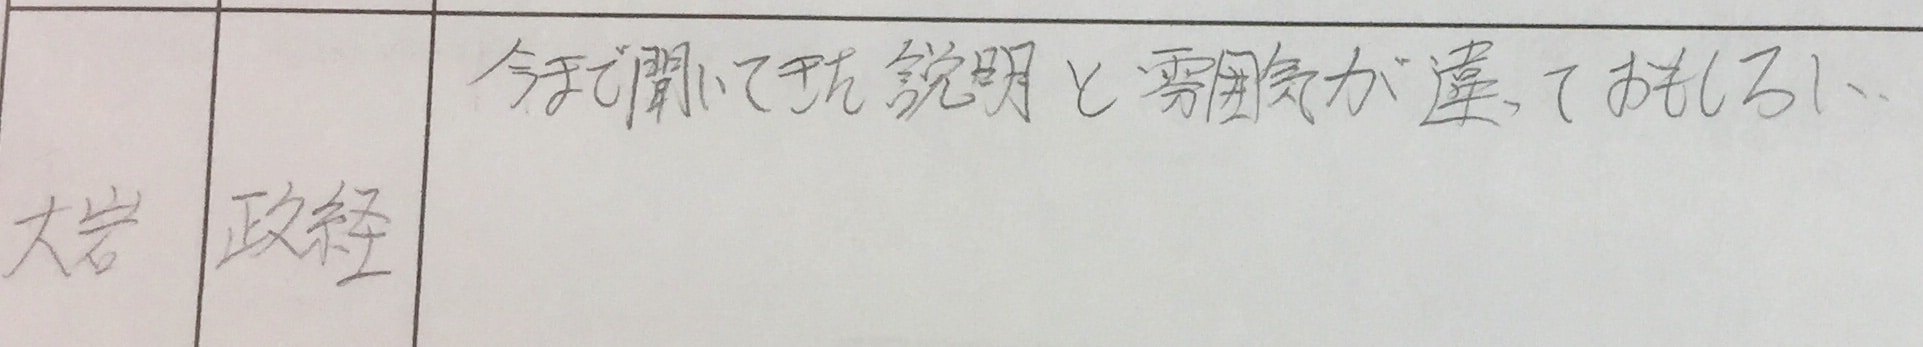 今まで聞いてきた説明と雰囲気が違っておもしろい。
大岩
政経